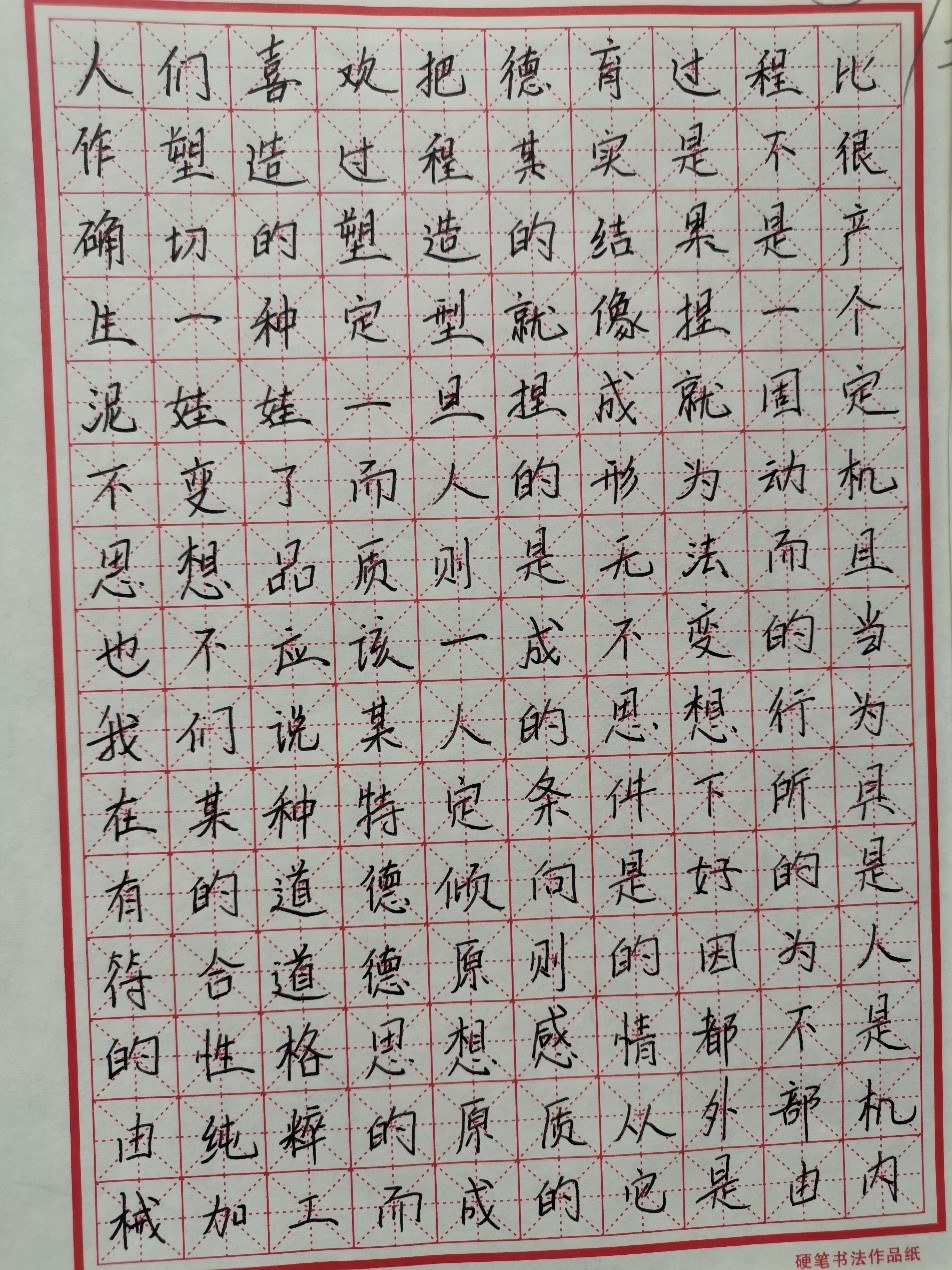 人们喜欢把德育过程比
作塑造过程其实是不很
确切的塑造的结果是产
生一种定型就像捏一个
泥娃娃一旦捏成就固定
不变了而人的形为动机
思想品质则是无法而且
也不应该一成不变的当
我们说某人的思想行为
在某种特定条件下所具
有的道德倾向是好的是
符合道德原则的因为人
的性格思想感情都不是
由纯粹的原质从外部机
械加工而成的它是由内
硬笔书法作品纸